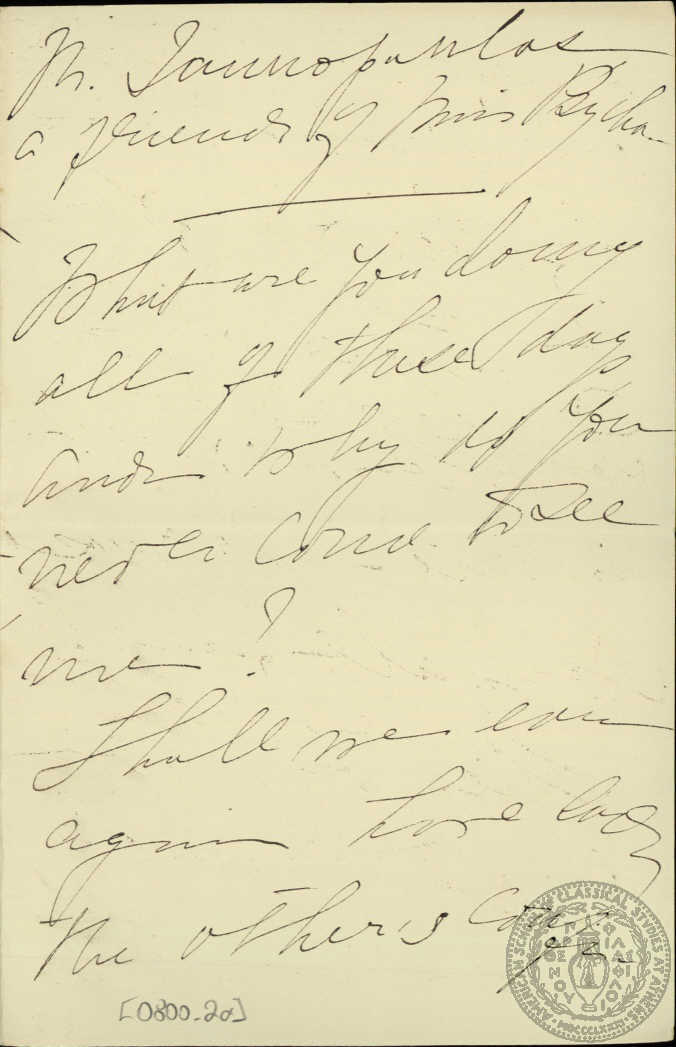 M. Iannopoulos
a friend of Miss
What are you doing
all of these days
and why do you
never come to see
me?
Shall we ever
again have
the other's
[0800-2α]
AMERICAN SCHOOL OF CLASSICAL STUDIES AT ATHENS
MDCCCLXXXI